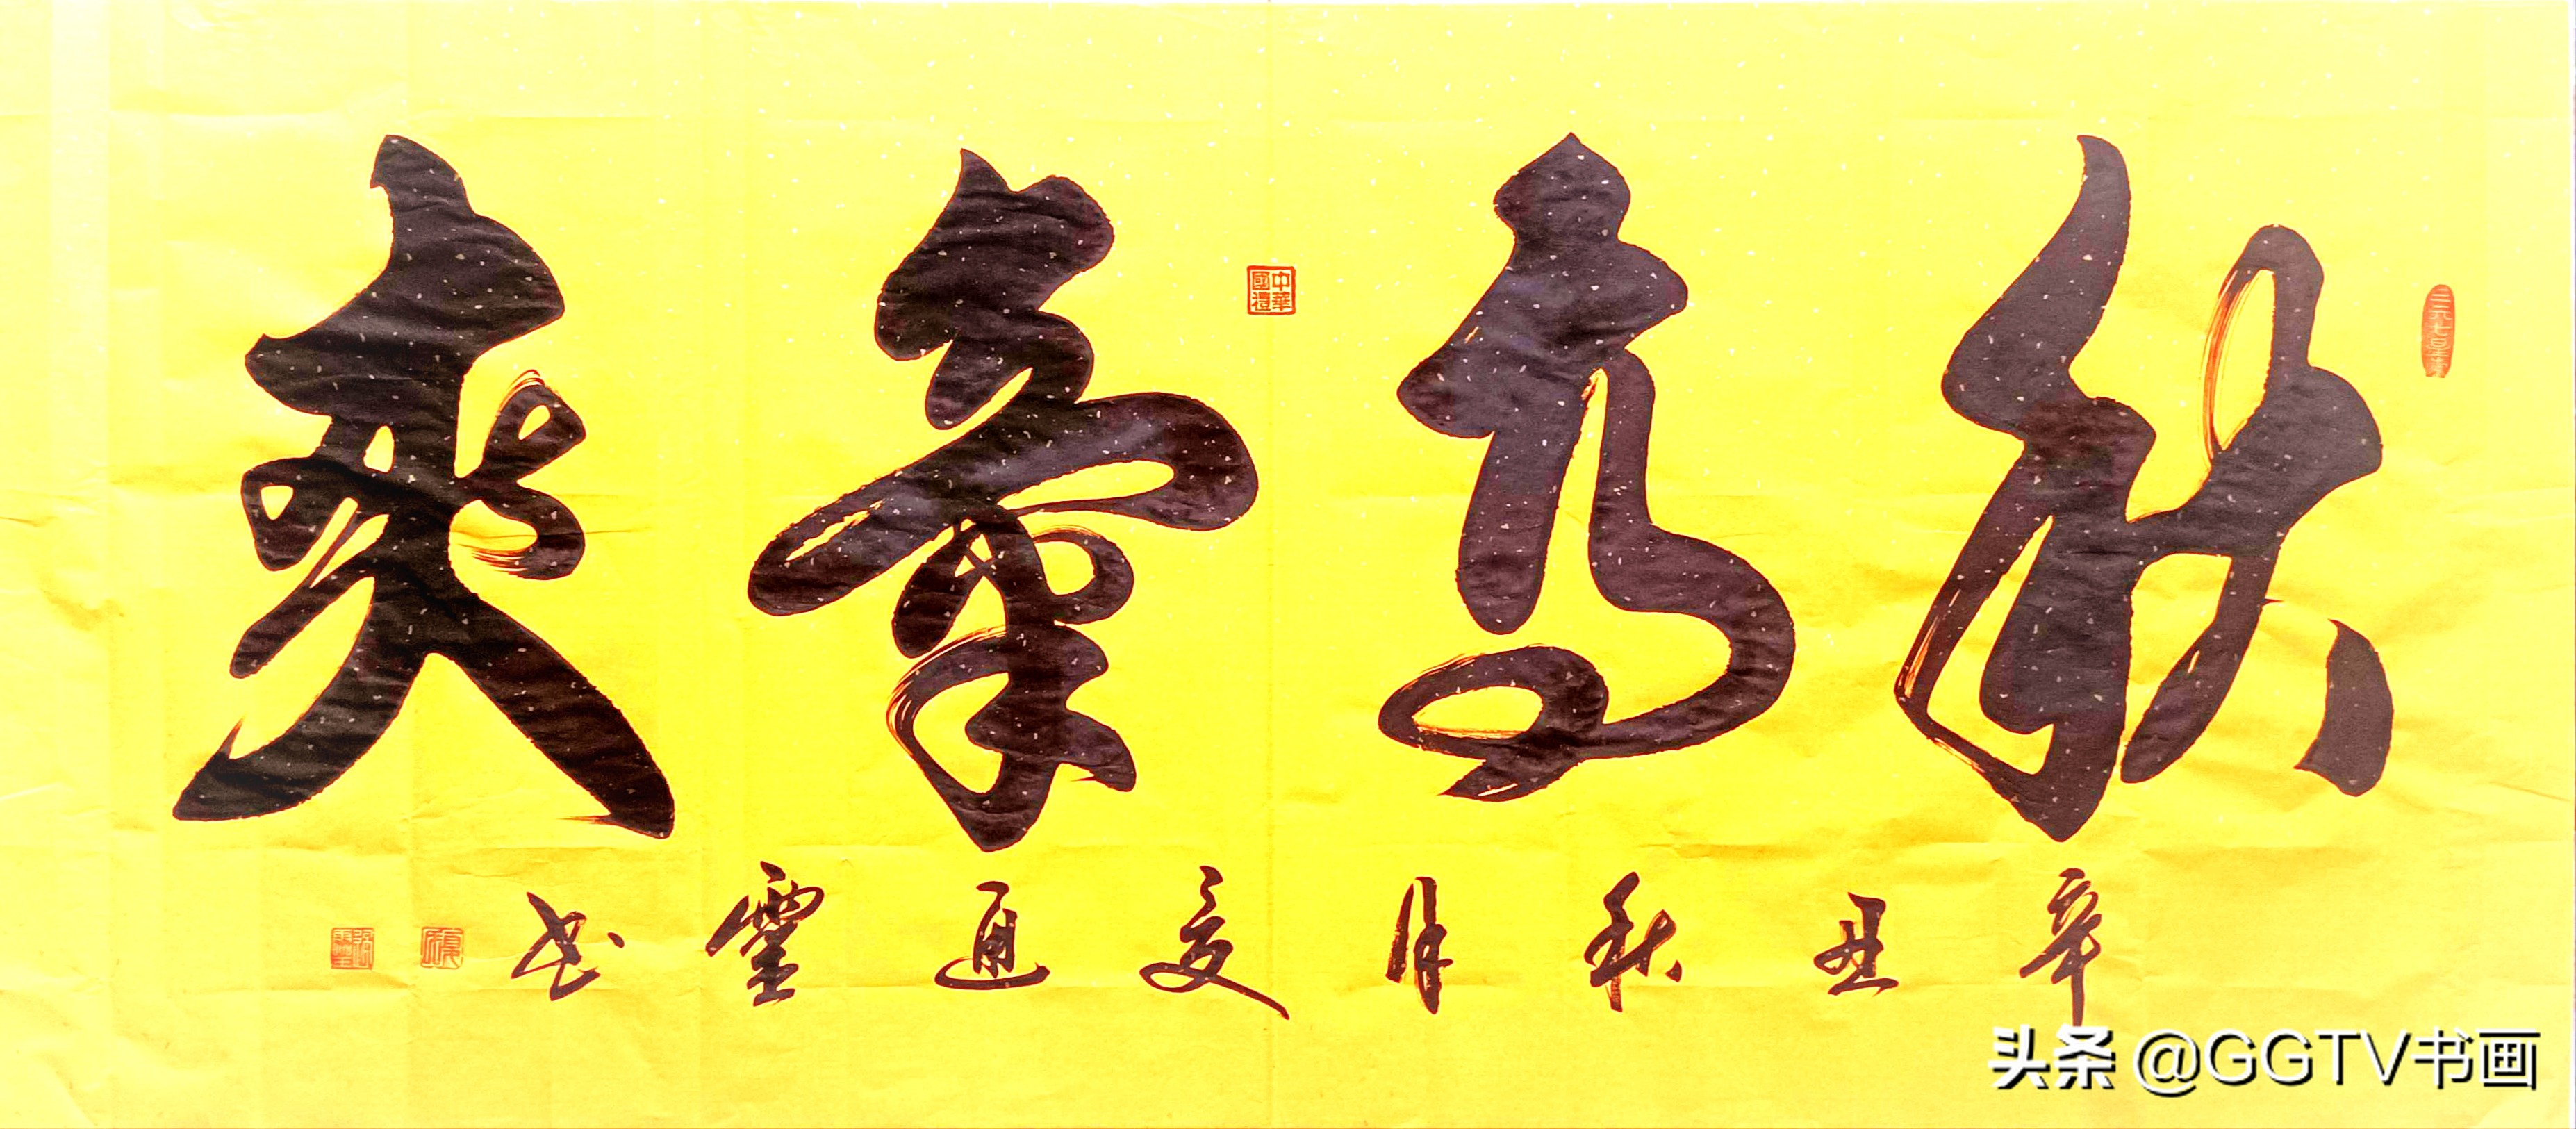 秋高氣爽
中華國禮
辛丑秋月夏通靈书
头条 @GGTV书画